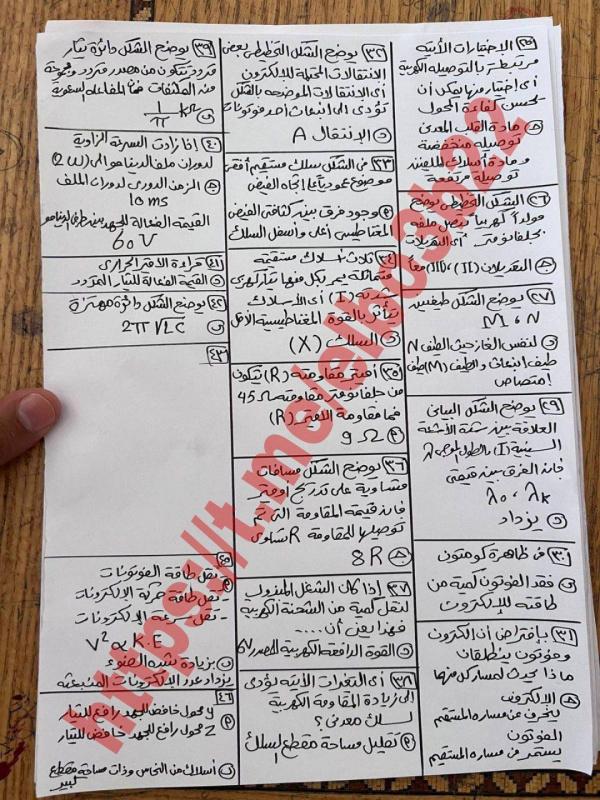 ٢٥ الإختيارات الآتية
مرتبطة بالتوصيلية الكهربية
أى إختيار منها يمكن أن
يحسن كفاءة المحول
مادة القلب المعدنى
توصيلية منخفضة
ومادة أسلاك الملفين
توصيلية مرتفعة
٢٦ الشكل التخطيطى يوضح
مولداً كهربياً يتصل ملفه
بجلفانومتر أى التعديلات
التعديلان (II)، (III) معاً
٢٧ يوضح الشكل طيفين
M ، N
لنفس الغاز حيث الطيف N
طيف انبعاث والطيف (M) طيف
إمتصاص
٢٩ يوضح الشكل البيانى
العلاقة بين شدة الأشعة
السينية (I) والطول الموجى λ
فإن الفرق بين قيمتى
يزداد
٣٠ فى ظاهرة كومتون
فقد الفوتون كمية من
طاقته للإلكترون
٣١ بإفتراض أن إلكترون
وفوتون ينطلقان
ماذا يحدث لمسار كل منهما
الإلكترون
ينحرف عن مساره المستقيم
الفوتون
يستمر فى مساره المستقيم
٣٢ يوضح الشكل التخطيطى بعض
الإنتقالات المحتملة للإلكترون
أى الإنتقالات الموضحه بالشكل
تؤدى الى انبعاث أحد فوتونات
الإنتقال A
٣٣ فى الشكل سلك مستقيم أفقى
موضوع عمودياً على إتجاه الفيض
وجود فرق بين كثافتى الفيض
المغناطيسى أعلى وأسفل السلك
٣٤ ثلاث أسلاك مستقيمة
متماثلة يمر بكل منها تيار كهربى
شدته (I) أى الأسلاك
تتأثر بالقوة المغناطيسية الأقل
السلك (X)
٣٥ أميتر مقاومته (R) يتكون
من جلفانومتر مقاومته 45Ω
فما مقاومة الأميتر (R)
9 Ω
٣٦ يوضح الشكل مسافات
متساوية على تدريج أوميتر
فإن قيمة المقاومة التى تم
توصيلها للمقاومة R تساوى
8R
٣٧ إذا كان الشغل المبذول
لنقل كمية من الشحنة الكهربية
فهذا يعنى أن....
القوة الدافعة الكهربية للمصدر
٣٨ أى التغيرات الآتية تؤدى
إلى زيادة المقاومة الكهربية
لسلك معدنى؟
تقليل مساحة مقطع السلك
٣٩ يوضح الشكل دائرة تيار
متردد تتكون من مصدر متردد ومجموعة
من المكثفات فما المفاعلة السعوية
1/π kΩ
٤٠ إذا زادت السرعة الزاوية
لدوران ملف الدينامو الى (2ω)
الزمن الدورى لدوران الملف
10ms
القيمة الفعالة للجهد بين طرفى الدينامو
60V
٤١ قراءة الأميتر الحرارى
القيمة الفعالة للتيار المتردد
٤٢ يوضح الشكل دائرة مهتزة
2π√LC
٤٣
٤٥
- تقل طاقة الفوتونات
- تقل طاقة حركة الإلكترونات
- تقل سرعة الإلكترونات
V² α K.E
بزيادة شدة الضوء
يزداد عدد الإلكترونات المنبعثة
٤٦
y محول خافض للجهد رافع للتيار
Z محول رافع للجهد خافض للتيار
أسلاك من النحاس وذات مساحة مقطع
كبير